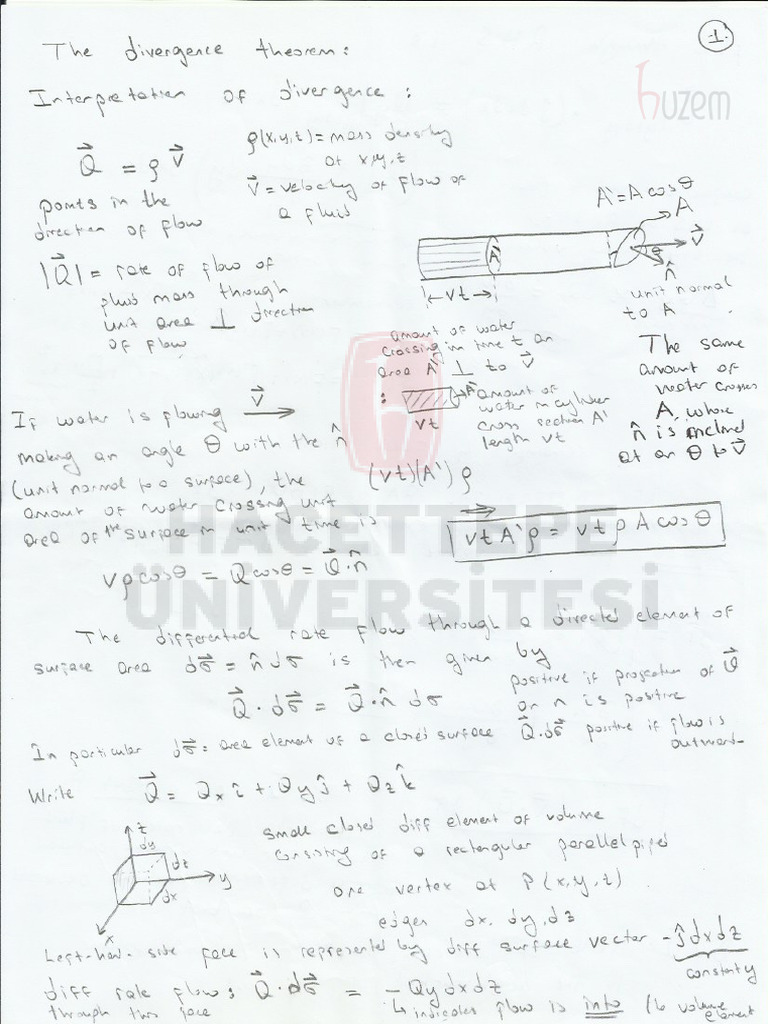 1.
The divergence theorem:
huzem
Interpretation of divergence:
Q = ρ V
ρ(x,y,z) = mass density
at x,y,z
V = velocity of flow of
a fluid
points in the
direction of flow
|Q| = rate of flow of
fluid mass through
unit area ⊥ direction
of flow
A' = A cosθ
A
V
θ
n̂
unit normal
to A
A'
vt
amount of water
crossing in time t an
area A' ⊥ to V
:
A'
vt
amount of
water in cylinder
cross section A'
length vt
The same
amount of
water crosses
A, whose
n̂ is inclined
at an θ to V
If water is flowing V
making an angle θ with the n̂
(unit normal to a surface), the
amount of water crossing unit
area of the surface in unit time is
(vt)(A') ρ
vtA'ρ = vtρ A cosθ
HACETTEPE
ÜNİVERSİTESİ
vρcosθ = Q cosθ = Q·n̂
The differential rate flow through a directed element of
surface area dσ = n̂ dσ is then given by
Q·dσ = Q·n̂ dσ
positive if projection of Q
on n is positive
In particular dσ = area element of a closed surface Q·dσ positive if flow is
outward
Write Q = Qx î + Qy ĵ + Qz k̂
z
dy
dz
dx
y
x
small closed diff element of volume
consisting of a rectangular parallelpiped
one vertex at P(x,y,z)
edges dx, dy, dz
Left-hand-side face is represented by diff surface vector -ĵ dxdz
constant y
diff rate flow: Q·dσ = -Qy dxdz
through this face
↳ indicates flow is into the volume
element